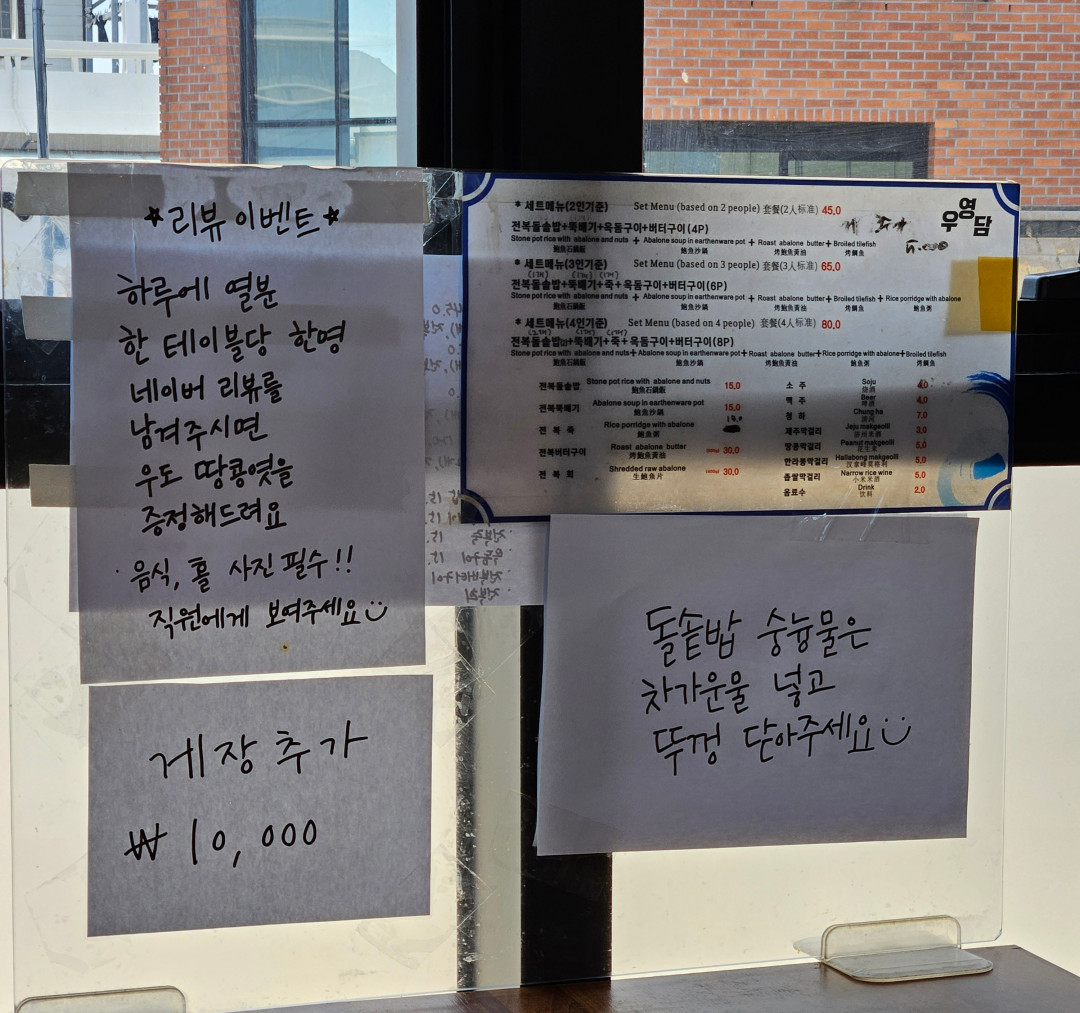 *리뷰이벤트*
하루에 열분
한 테이블당 한명
네이버 리뷰를
남겨주시면
우도 땅콩엿을
증정해드려요
· 음식, 홀 사진 필수!!
직원에게 보여주세요
게장추가
₩ 10,000
우영담
* 세트메뉴(2인기준) Set Menu (based on 2 people) 套餐(2人标准) 45,0
전복돌솥밥+뚝배기+옥돔구이+버터구이(4P)
Stone pot rice with abalone and nuts + Abalone soup in earthenware pot + Roast abalone butter + Broiled tilefish
鮑魚石鍋飯 鮑魚沙鍋 烤鮑魚黃油 烤鯛魚
* 세트메뉴(3인기준) Set Menu (based on 3 people) 套餐(3人标准) 65,0
(1개) (1개) (1개)
전복돌솥밥+뚝배기+죽+옥돔구이+버터구이(6P)
Stone pot rice with abalone and nuts + Abalone soup in earthenware pot + Roast abalone butter + Broiled tilefish + Rice porridge with abalone
鮑魚石鍋飯 鮑魚沙鍋 烤鮑魚黃油 烤鯛魚 鮑魚粥
* 세트메뉴(4인기준) Set Menu (based on 4 people) 套餐(4人标准) 80,0
(2개) (1개) (1개)
전복돌솥밥(2)+뚝배기+죽+옥돔구이+버터구이(8P)
Stone pot rice with abalone and nuts + Abalone soup in earthenware pot + Roast abalone butter + Rice porridge with abalone + Broiled tilefish
鮑魚石鍋飯 鮑魚沙鍋 烤鮑魚黃油 鮑魚粥 烤鯛魚
전복돌솥밥 Stone pot rice with abalone and nuts 15,0
鮑魚石鍋飯
전복뚝배기 Abalone soup in earthenware pot 15,0
鮑魚沙鍋
전 복 죽 Rice porridge with abalone 15.0
鮑魚粥
전복버터구이 Roast abalone butter 30,0
烤鮑魚黃油
전 복 회 Shredded raw abalone 30,0
生鮑魚片
소 주 Soju 4,0
烧酒
맥 주 Beer 4,0
啤酒
청 하 Chung ha 7,0
清河
제주막걸리 Jeju makgeolli 3,0
济州米酒
땅콩막걸리 Peanut makgeolli 5,0
花生米
한라봉막걸리 Hallabong makgeolli 5,0
汉拿峰莫格利
좁쌀막걸리 Narrow rice wine 5,0
小米米酒
음료수 Drink 2,0
饮料
돌솥밥 숭늉물은
차가운물 넣고
뚜껑 닫아주세요